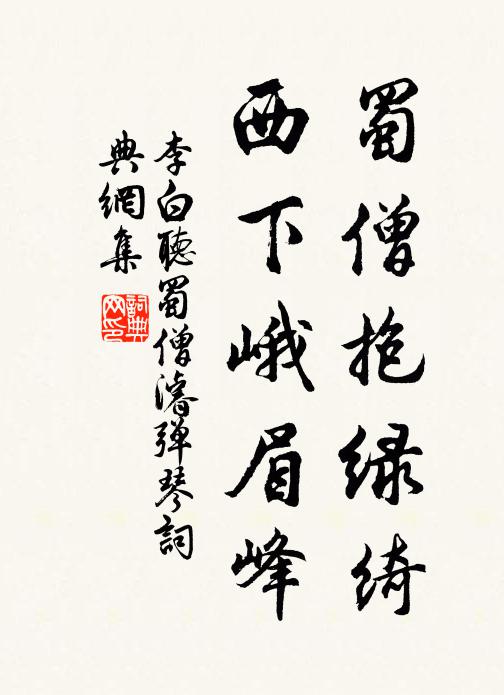 蜀僧抱绿绮
西下峨眉峰
李白聽蜀僧濬弹琴詞
典網集
詞典网印